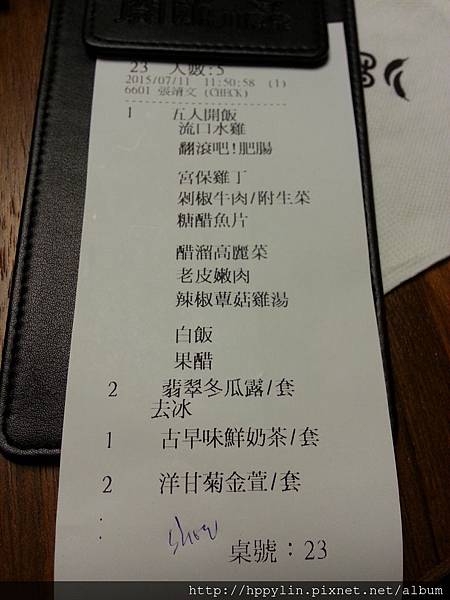 23 人數:5
2015/07/11 11:50:58 (1)
6601 張靖文 (CHECK)
1 五人開飯
流口水雞
翻滾吧!肥腸
宮保雞丁
剁椒牛肉/附生菜
糖醋魚片
醋溜高麗菜
老皮嫩肉
辣椒蕈菇雞湯
白飯
果醋
2 翡翠冬瓜露/套
去冰
1 古早味鮮奶茶/套
2 洋甘菊金萱/套
:
桌號：23
http://hppylin.pixnet.net/album